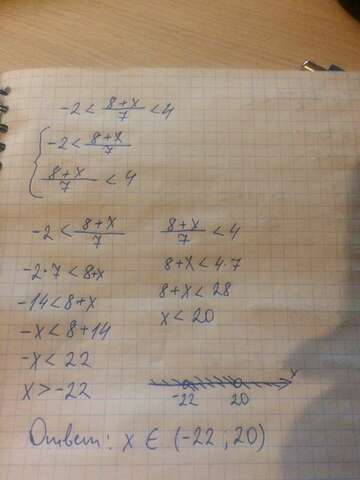 -2 < (8+x)/7 < 4
{ -2 < (8+x)/7
(8+x)/7 < 4
-2 < (8+x)/7
-2·7 < 8+x
-14 < 8+x
-x < 8+14
-x < 22
x > -22
(8+x)/7 < 4
8+x < 4·7
8+x < 28
x < 20
-22 20 x
Ответ: x ∈ (-22 ; 20)